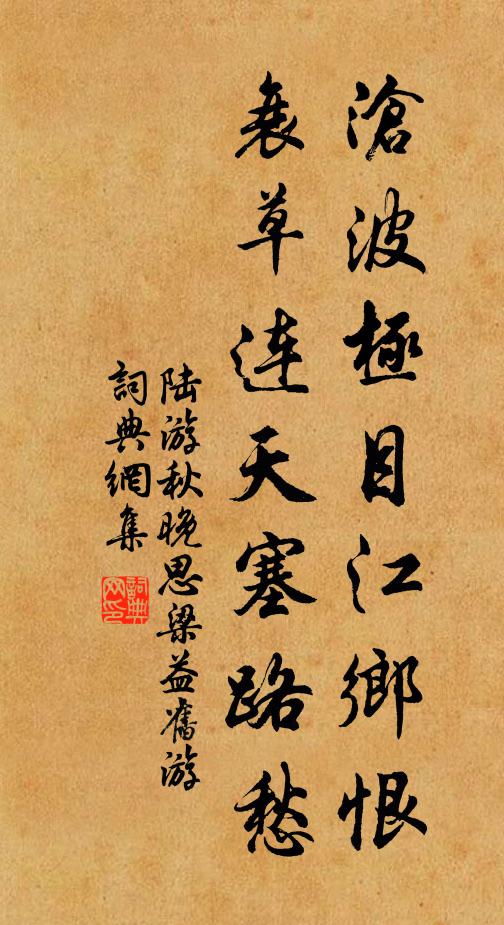 滄波極目江鄉恨
衰草連天塞路愁
陆游秋晚思梁益舊游
詞典網集
詞典网印